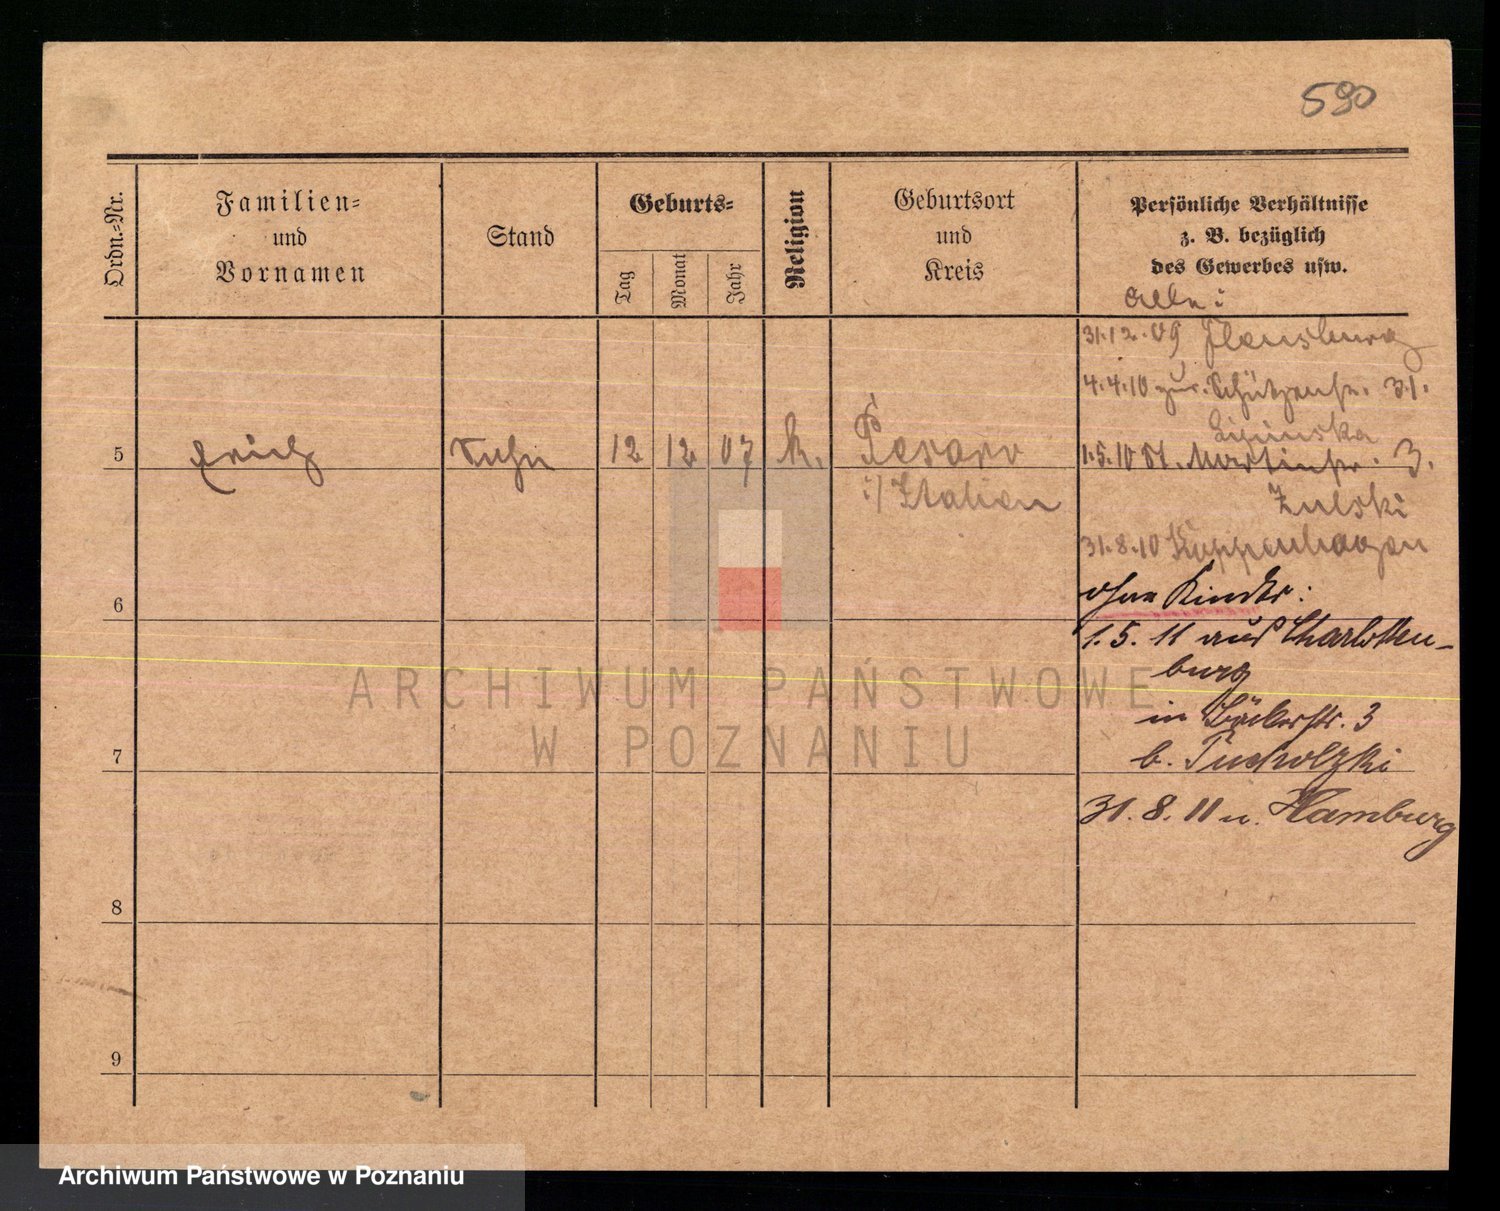 590
Ordn.-Nr.
Familien-
und
Vornamen
Stand
Geburts-
Tag
Monat
Jahr
Religion
Geburtsort
und
Kreis
Persönliche Verhältnisse
z. B. bezüglich
des Gewerbes usw.
Alle:
31.12.09 Flensburg
4.4.10 zur. Schützenstr. 31.
Lipinska
5 Erich Sohn 12 12 07 k. Pesaro
1.5.10 St. Martinstr. 3.
i/ Italien
Zulski
31.8.10 Koppenhagen
6
ohne Kinder:
1. 5. 11 aus Charlotten-
burg
in Bäckerstr. 3
7
b. Tucholzki
31. 8. 11 n. Hamburg
8
9
ARCHIWUM PAŃSTWOWE
W POZNANIU
Archiwum Państwowe w Poznaniu